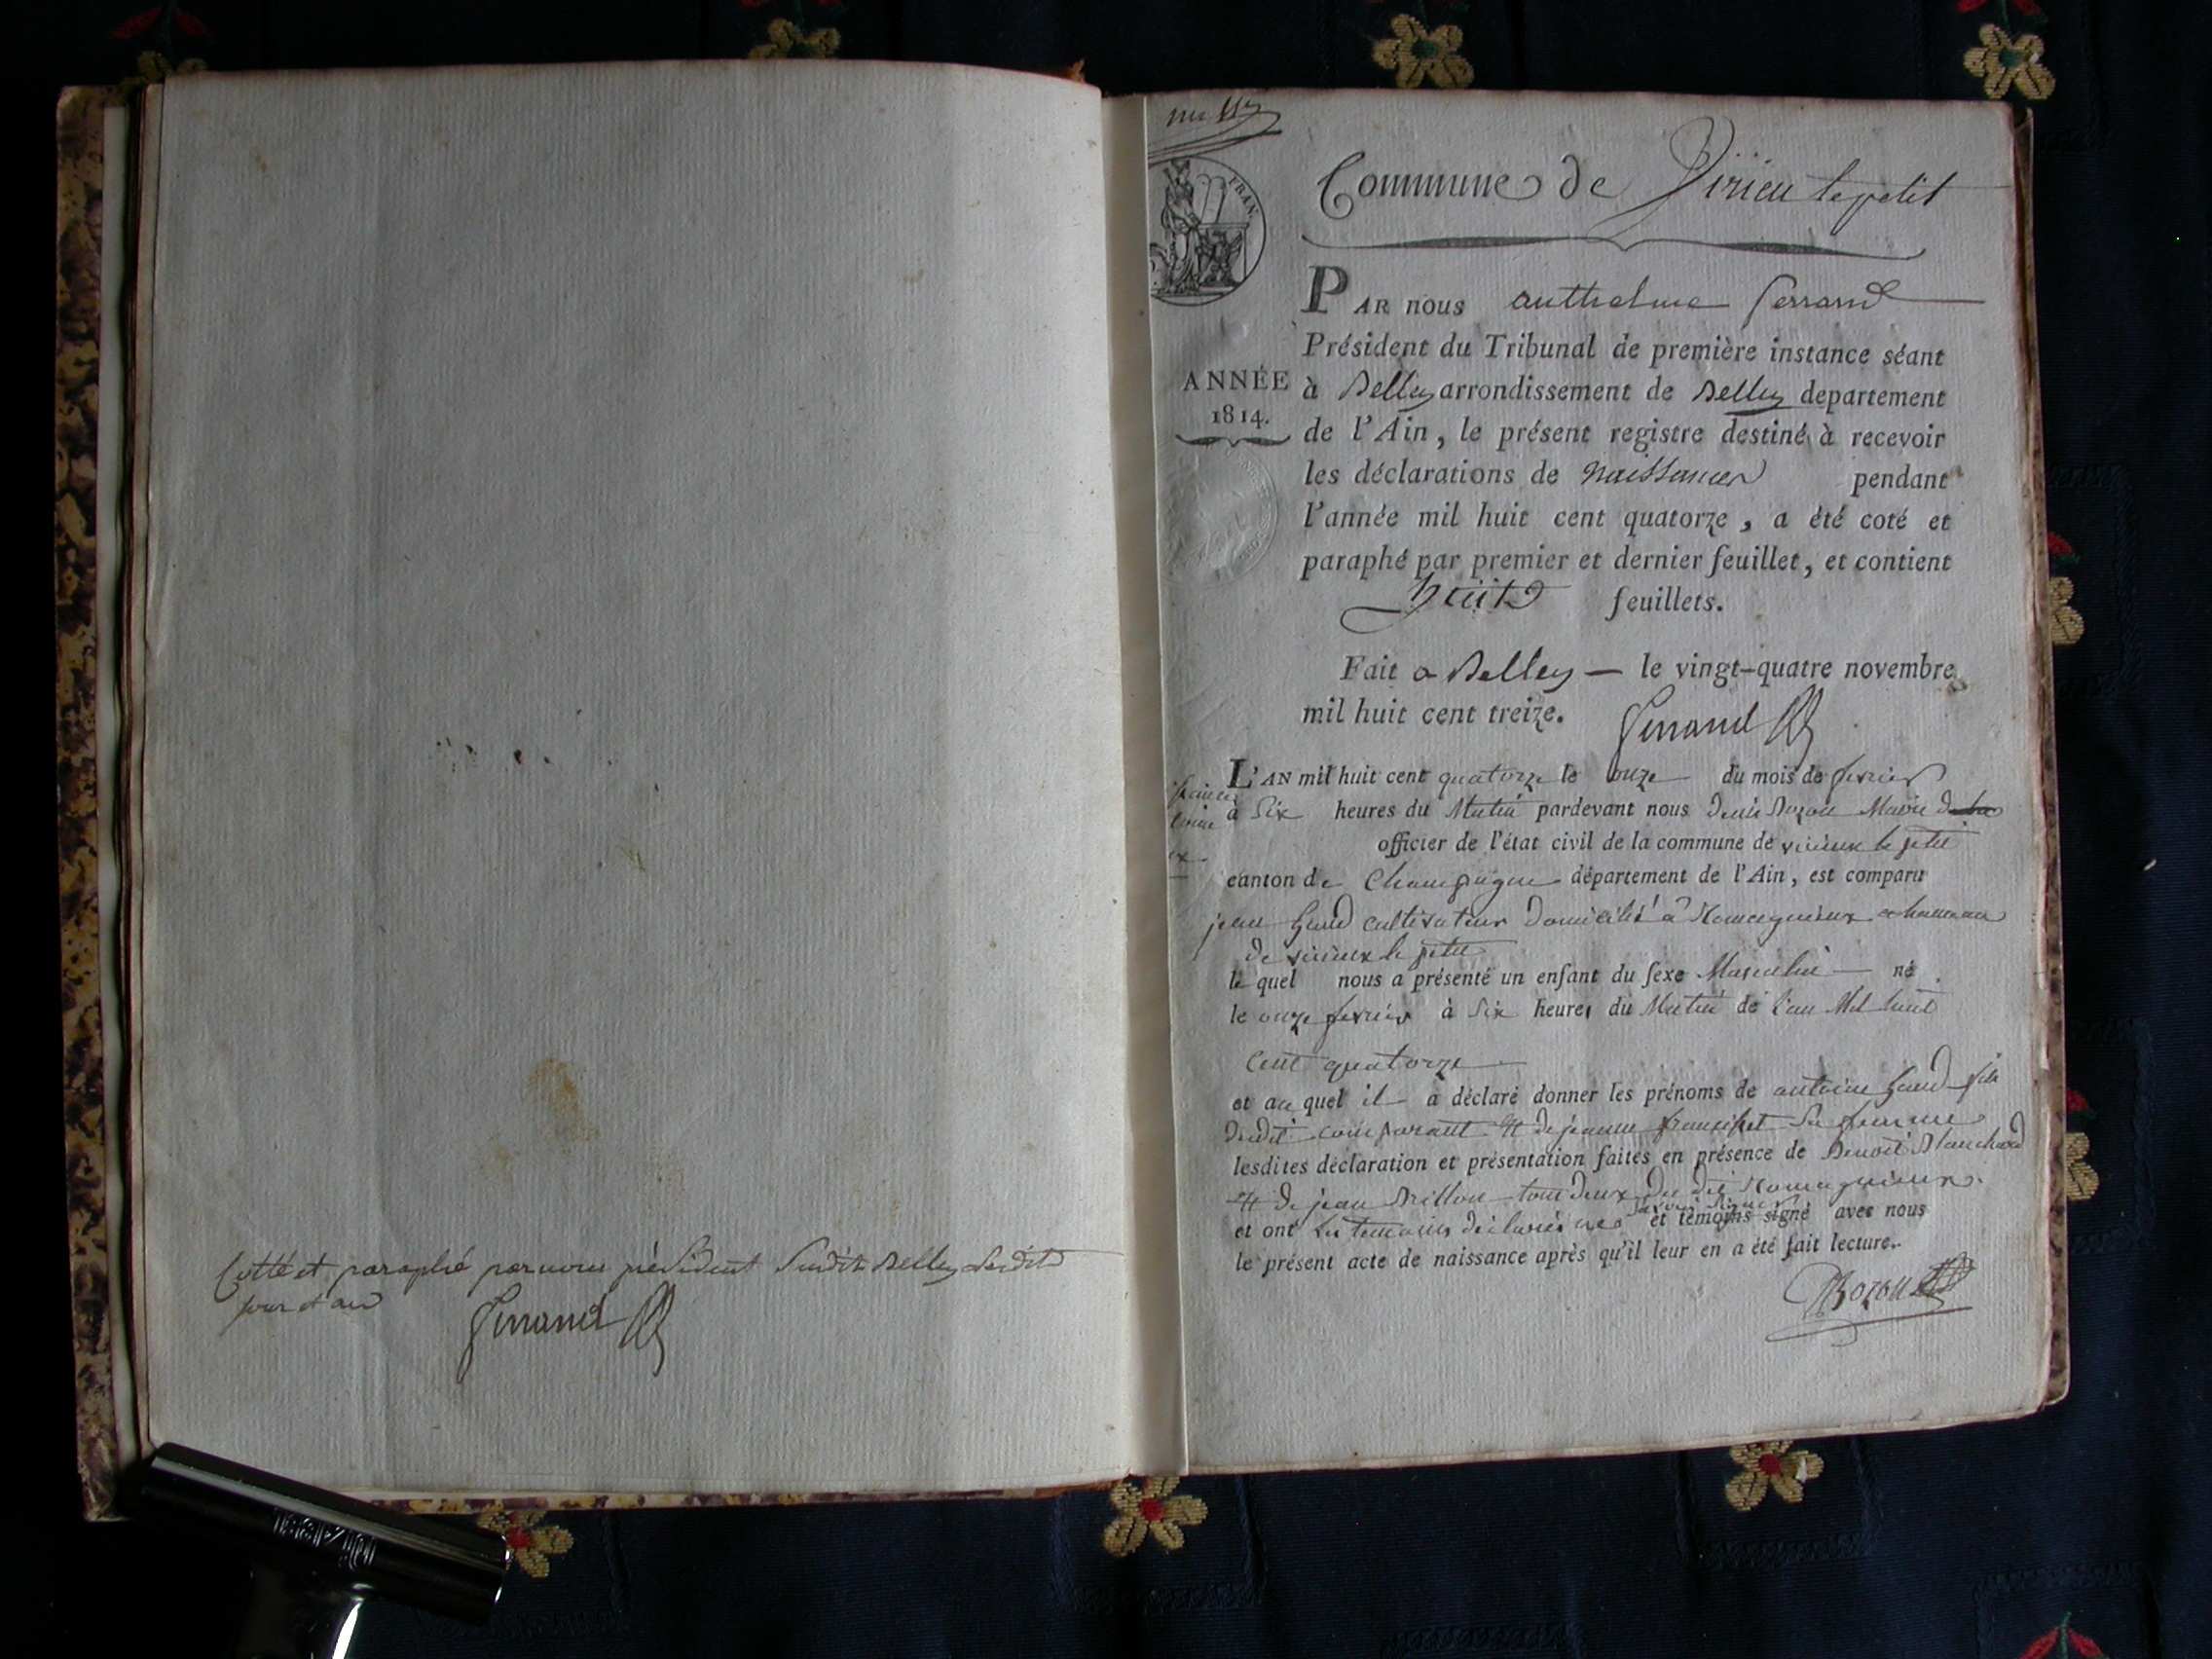 Cotté et paraphé par nous président susdit Belley lesdits
jour et an
Ferrand
FRAN.
Commune de Virieu le petit
PAR nous anthelme ferrand
Président du Tribunal de première instance séant
ANNÉE
1814.
à Belley arrondissement de Belley departement
de l'Ain, le présent registre destiné à recevoir
les déclarations de naissances pendant
l'année mil huit cent quatorze, a été coté et
paraphé par premier et dernier feuillet, et contient
huit feuillets.
Fait a Belley — le vingt-quatre novembre
mil huit cent treize.
Ferrand
L'AN mil huit cent quatorze le onze du mois de fevrier
à Six heures du Matin pardevant nous Denis Bozon Maire de
officier de l'état civil de la commune de virieux le petit
canton de Champagne département de l'Ain, est comparu
jean cultivateur domicilié à hameau
de virieux le petit
le quel nous a présenté un enfant du sexe Masculin né
le onze fevrier à Six heures du Matin de l'an Mil huit
cent quatorze
et au quel il a déclaré donner les prénoms de antoine fils
dudit comparant et de jeanne sa femme
lesdites déclaration et présentation faites en présence de Benoit Blanchard
et de jean Brillon tout deux du dit
et ont les temoins déclarés ne savoir signer et témoins signé avec nous
le présent acte de naissance après qu'il leur en a été fait lecture.
Bozon